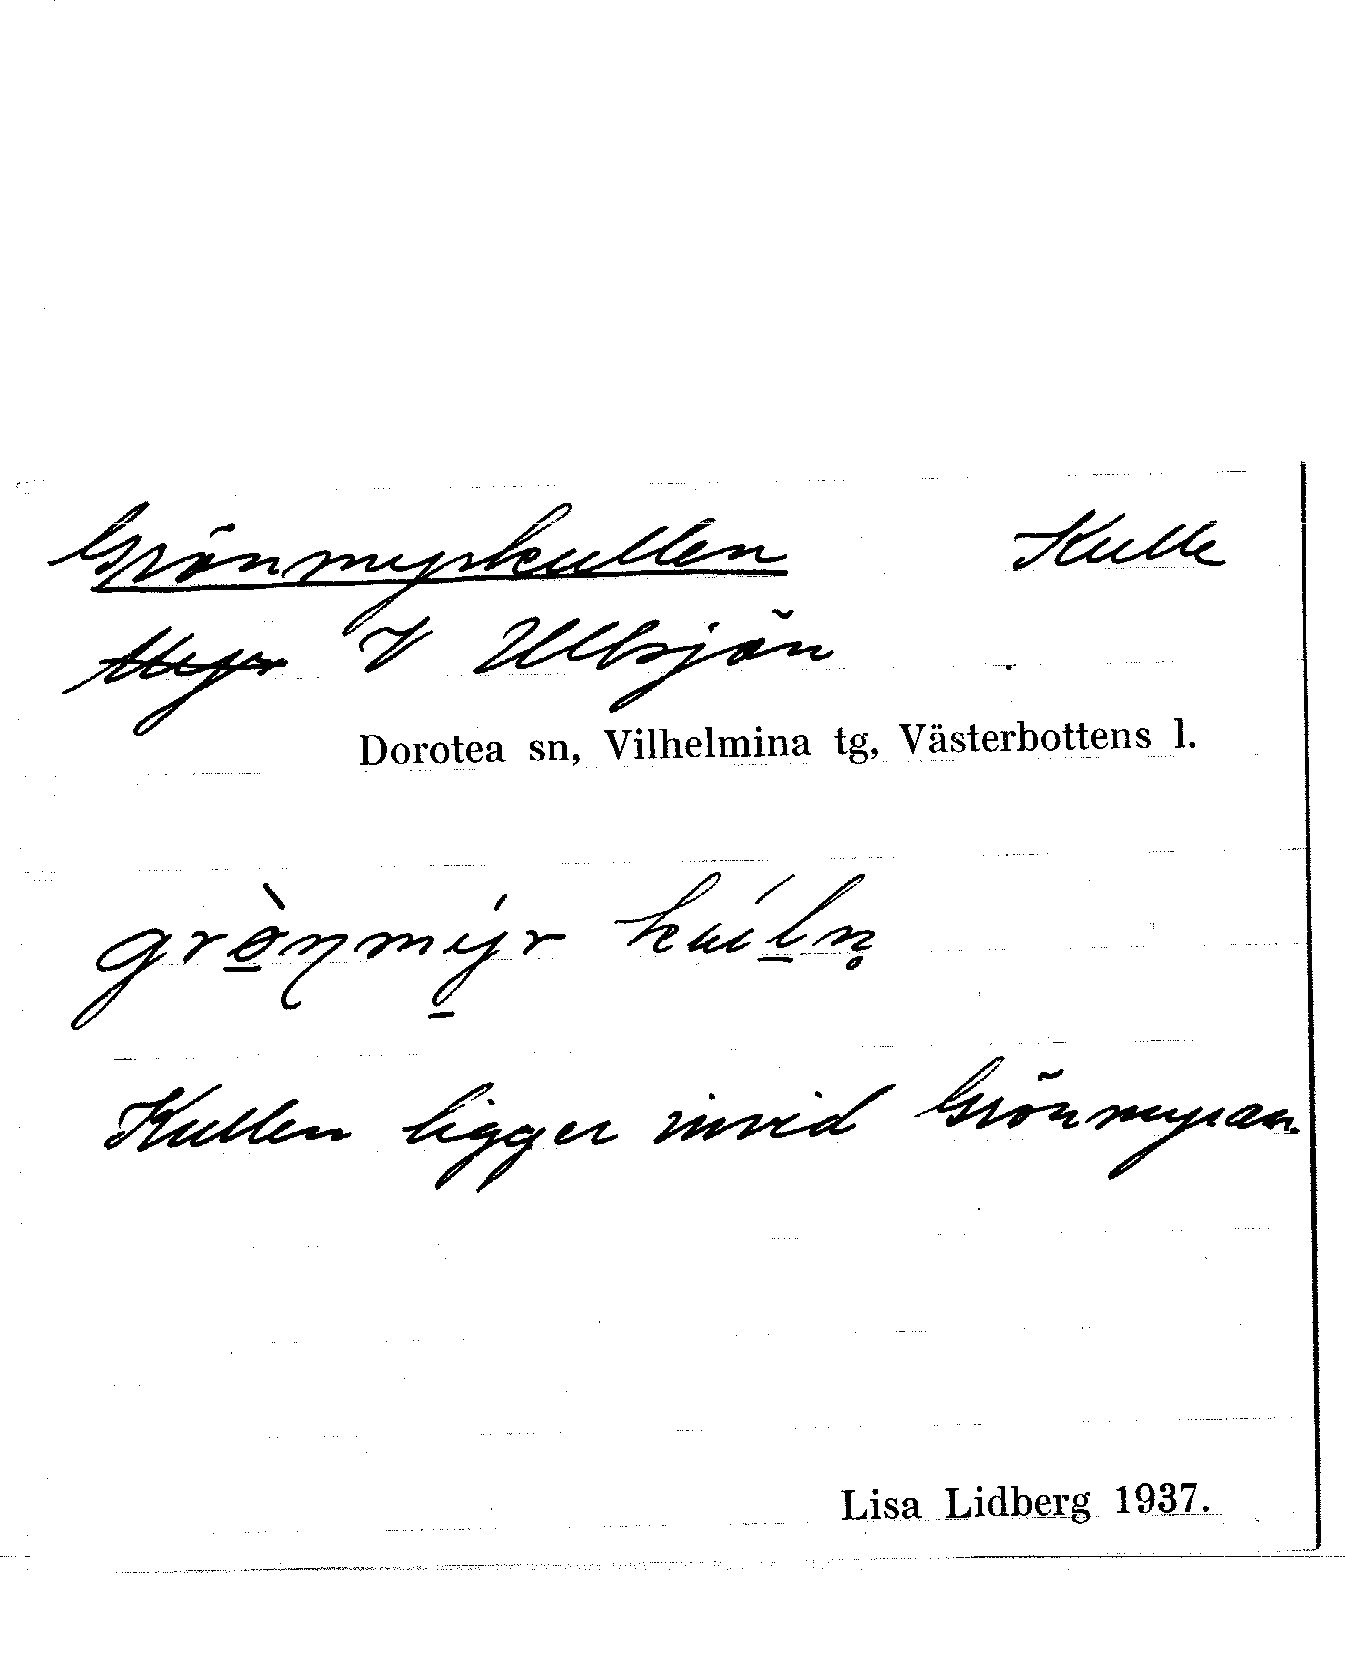 Grönmyrkullen Kulle
Myr V Ullsjön
Dorotea sn, Vilhelmina tg, Västerbottens l.
grò̱ŋmý̱r kúḻn̥
Kullen ligger invid Grönmyran.
Lisa Lidberg 1937.